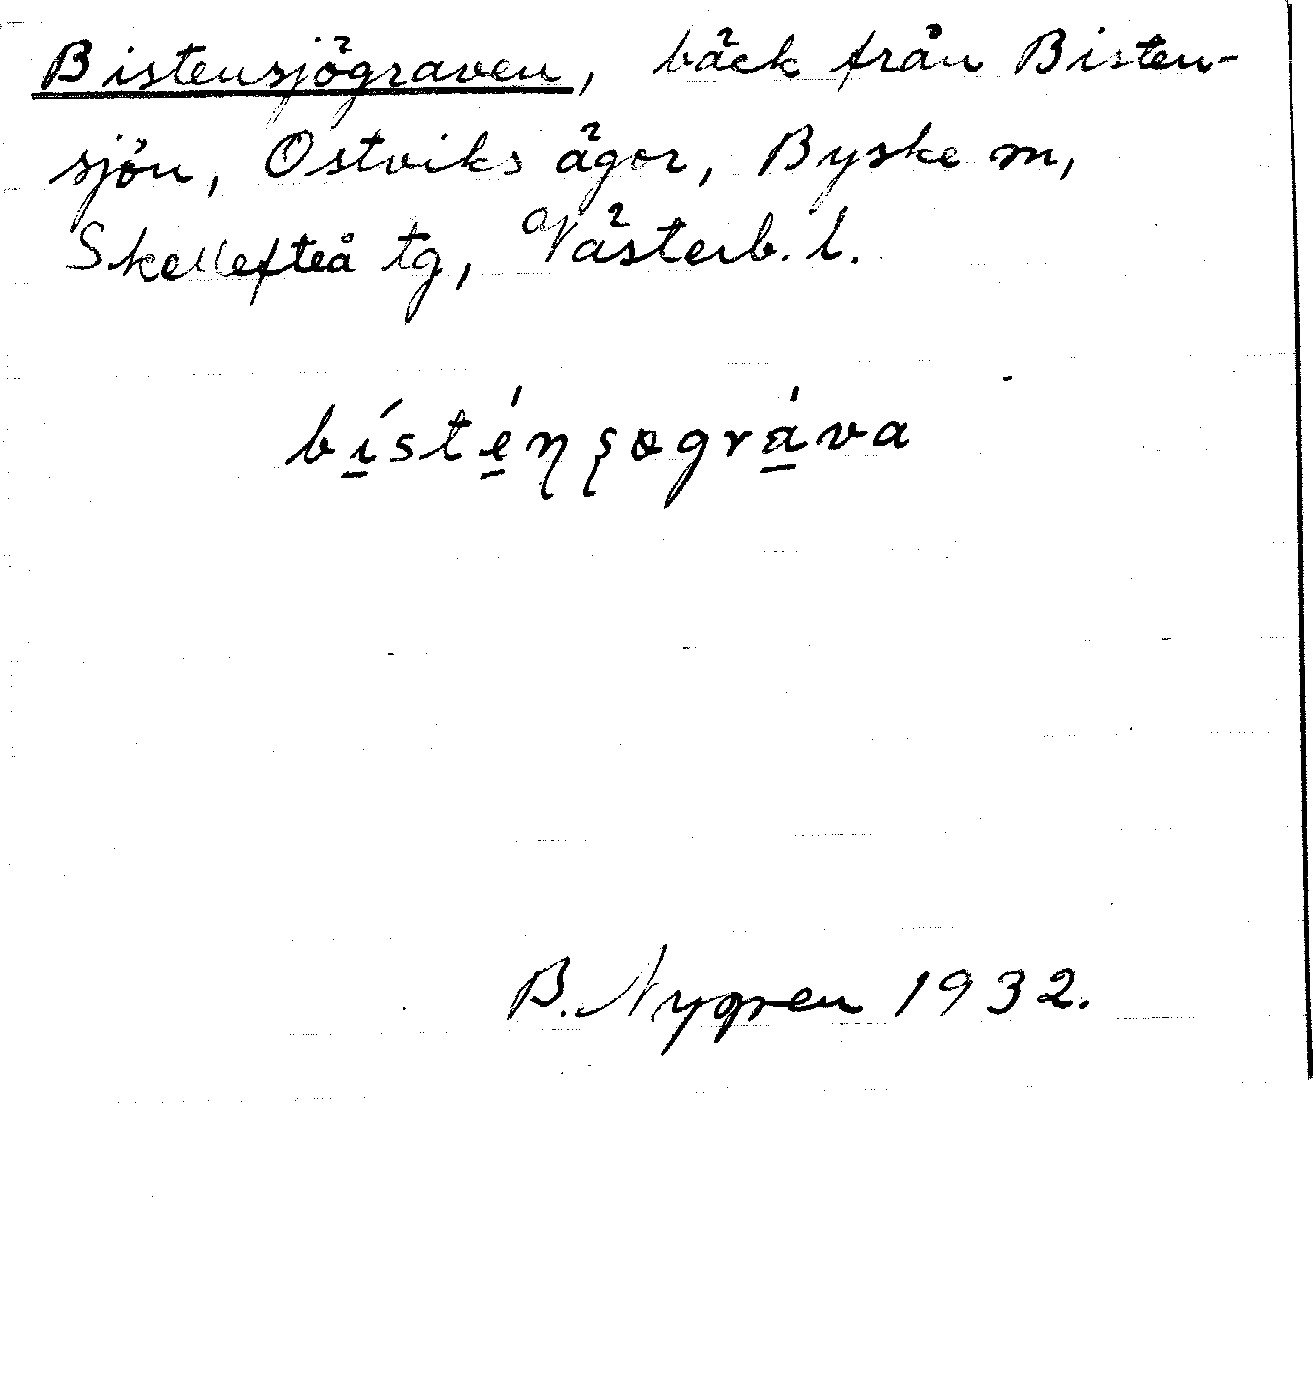 Bistensjögraven, bäck från Bisten-
sjön, Ostviks ägor, Byske sn,
Skellefteå tg, Västerb. l.
bı̱́stę̱́ŋșográ̱va
B. Nygren 1932.